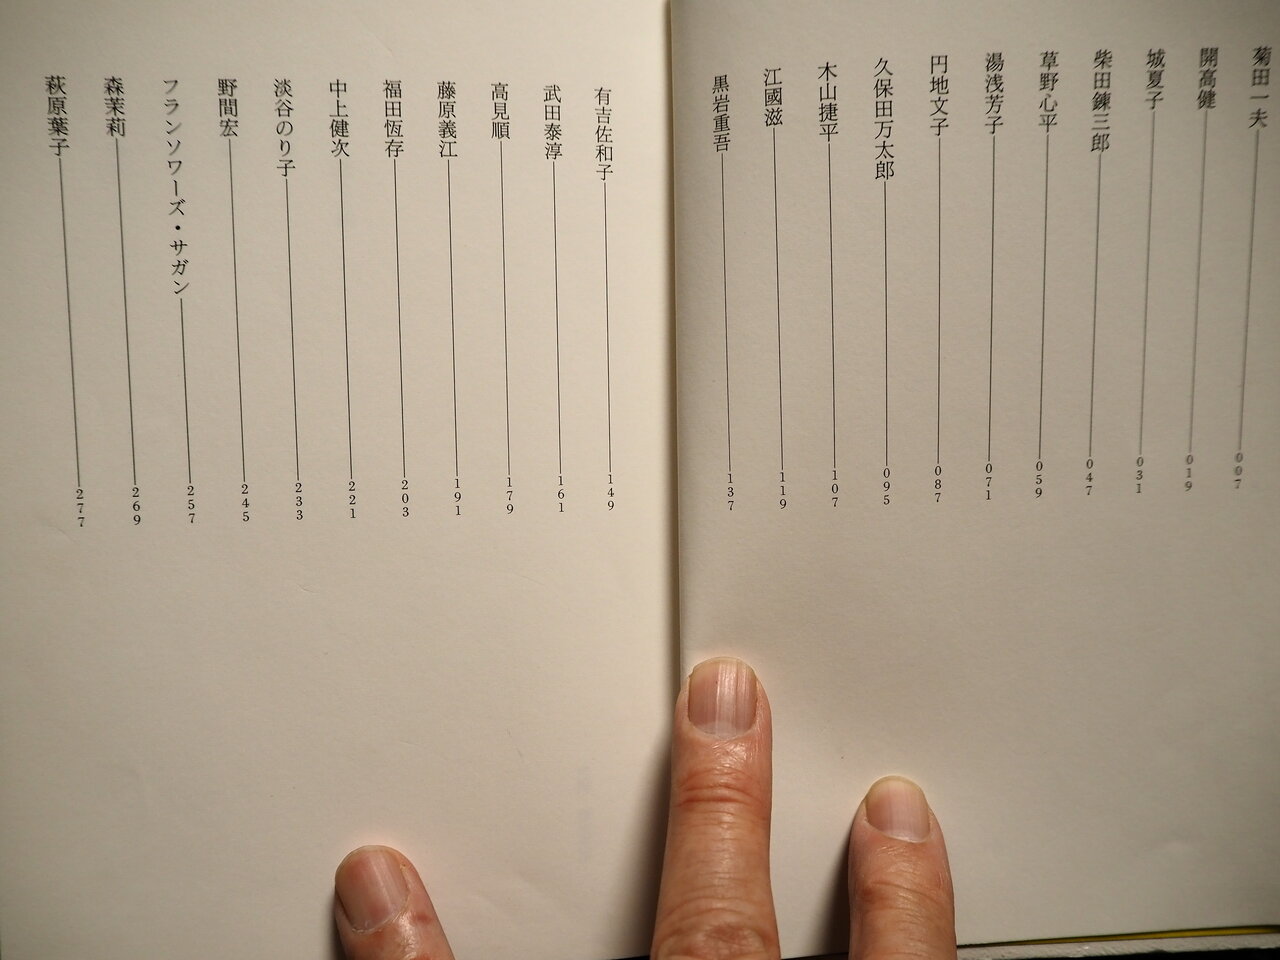 菊田一夫 007
開高健 019
城夏子 031
柴田錬三郎 047
草野心平 059
湯浅芳子 071
円地文子 087
久保田万太郎 095
木山捷平 107
江國滋 119
黒岩重吾 137
有吉佐和子 149
武田泰淳 161
高見順 179
藤原義江 191
福田恆存 203
中上健次 221
淡谷のり子 233
野間宏 245
フランソワーズ・サガン 257
森茉莉 269
萩原葉子 277